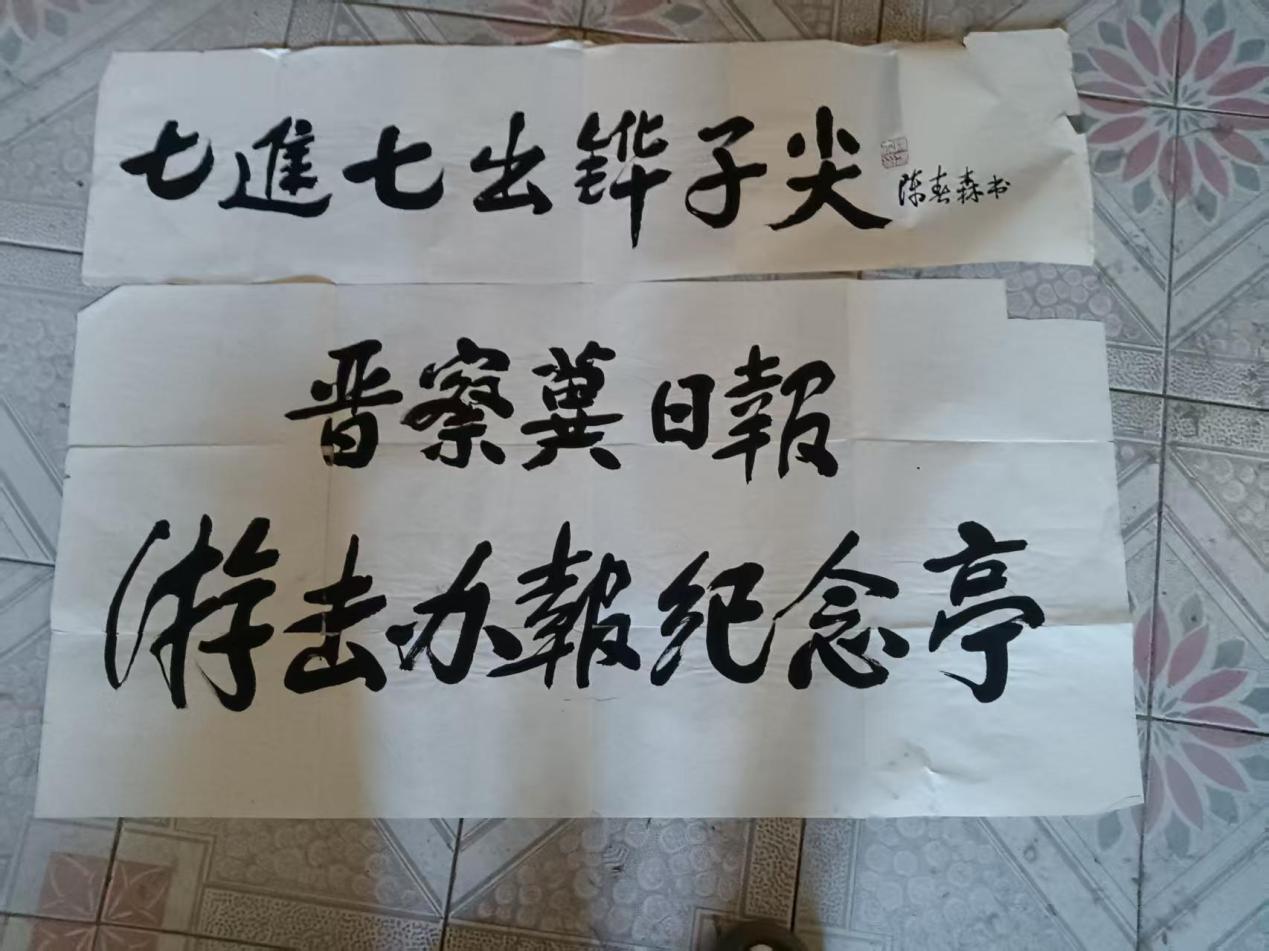 七進七出铧子尖
陈春森书
晋察冀日報
游击办報纪念亭